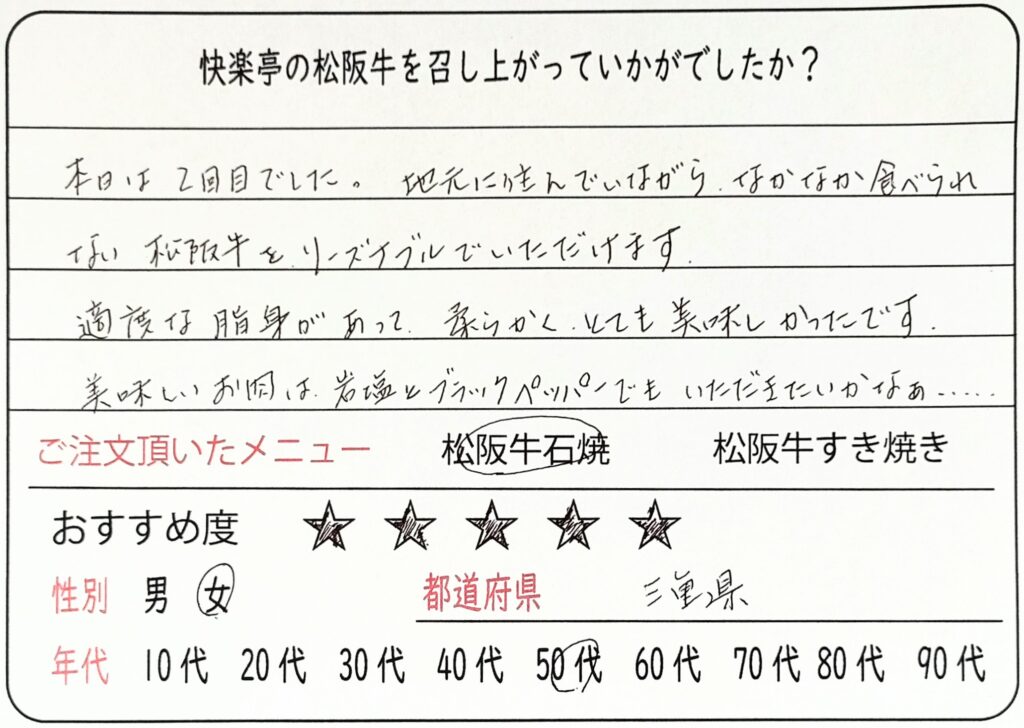 快楽亭の松阪牛を召し上がっていかがでしたか？
本日は2回目でした。地元に住んでいながら、なかなか食べられ
ない 松阪牛を、リーズナブルでいただけます。
適度な脂身があって、柔らかく、とても美味しかったです。
美味しいお肉は、岩塩とブラックペッパーでも いただきたいかなぁ……
ご注文頂いたメニュー 松阪牛石焼 松阪牛すき焼き
おすすめ度 ★ ★ ★ ★ ★
性別 男 女 都道府県 三重県
年代 10代 20代 30代 40代 50代 60代 70代 80代 90代